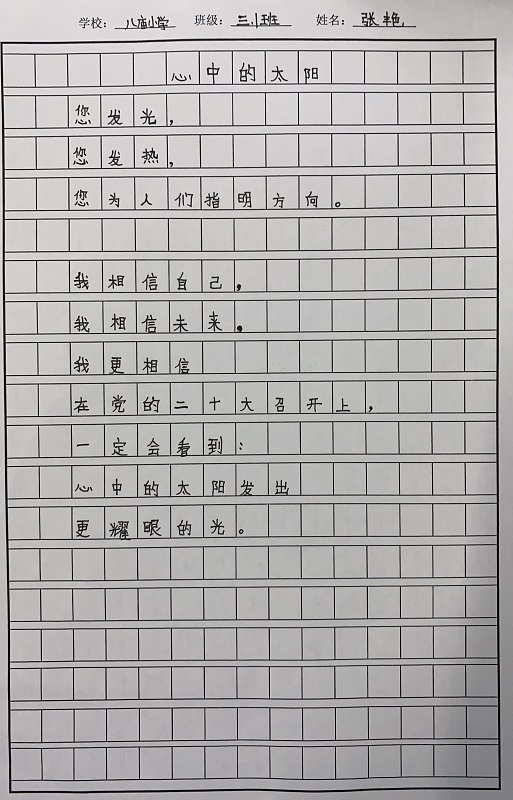 学校：八庙小学 班级：三.1班 姓名：张艳
心中的太阳
您发光，
您发热，
您为人们指明方向。
我相信自己，
我相信未来。
我更相信
在党的二十大召开上，
一定会看到：
心中的太阳发出
更耀眼的光。